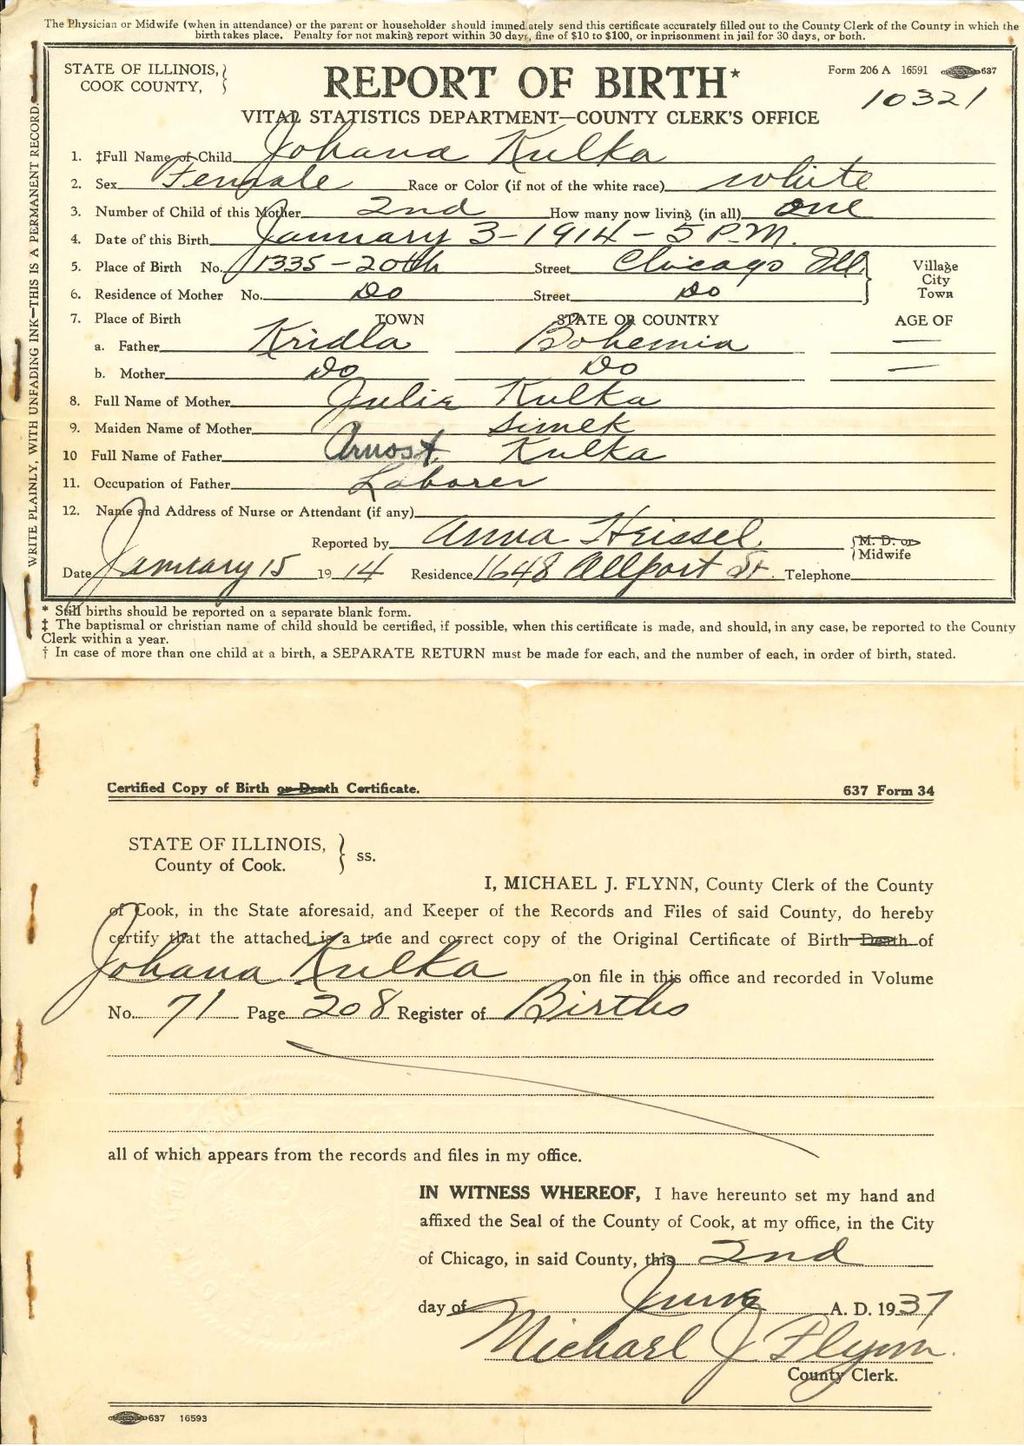 The Physician or Midwife (when in attendance) or the parent or householder should immediately send this certificate accurately filled out to the County Clerk of the County in which the
birth takes place. Penalty for not making report within 30 days, fine of $10 to $100, or inprisonment in jail for 30 days, or both.
WRITE PLAINLY, WITH UNFADING INK—THIS IS A PERMANENT RECORD.
STATE OF ILLINOIS, } REPORT OF BIRTH* Form 206 A 16591 637
COOK COUNTY, 10321
VITAL STATISTICS DEPARTMENT—COUNTY CLERK'S OFFICE
1. ‡Full Name of Child Johana Kulka
2. Sex Female Race or Color (if not of the white race) white
3. Number of Child of this Mother 2nd How many now living (in all) one
4. Date of this Birth January 3 - 1914 - 5 P.M.
5. Place of Birth No. 1335 - 20th Street Chicago Ill. } Village
City
6. Residence of Mother No. Do Street Do Town
7. Place of Birth TOWN STATE OR COUNTRY AGE OF
a. Father Kridla Bohemia —
b. Mother Do Do —
8. Full Name of Mother Julia Kulka
9. Maiden Name of Mother Simek
10 Full Name of Father Arnost. Kulka
11. Occupation of Father Laborer
12. Name and Address of Nurse or Attendant (if any)
Reported by Anna Heissel. { M. D. or
Midwife
Date January 15 1914 Residence 1648 Allport St. Telephone
* Still births should be reported on a separate blank form.
‡ The baptismal or christian name of child should be certified, if possible, when this certificate is made, and should, in any case, be reported to the County
Clerk within a year.
† In case of more than one child at a birth, a SEPARATE RETURN must be made for each, and the number of each, in order of birth, stated.
Certified Copy of Birth or Death Certificate. 637 Form 34
STATE OF ILLINOIS, } ss.
County of Cook.
I, MICHAEL J. FLYNN, County Clerk of the County
of Cook, in the State aforesaid, and Keeper of the Records and Files of said County, do hereby
certify that the attached is a true and correct copy of the Original Certificate of Birth Death of
Johana Kulka on file in this office and recorded in Volume
No. 71 Page 208 Register of Births
all of which appears from the records and files in my office.
IN WITNESS WHEREOF, I have hereunto set my hand and
affixed the Seal of the County of Cook, at my office, in the City
of Chicago, in said County, this 2nd
day of June A. D. 1937
Michael J Flynn.
County Clerk.
637 16593